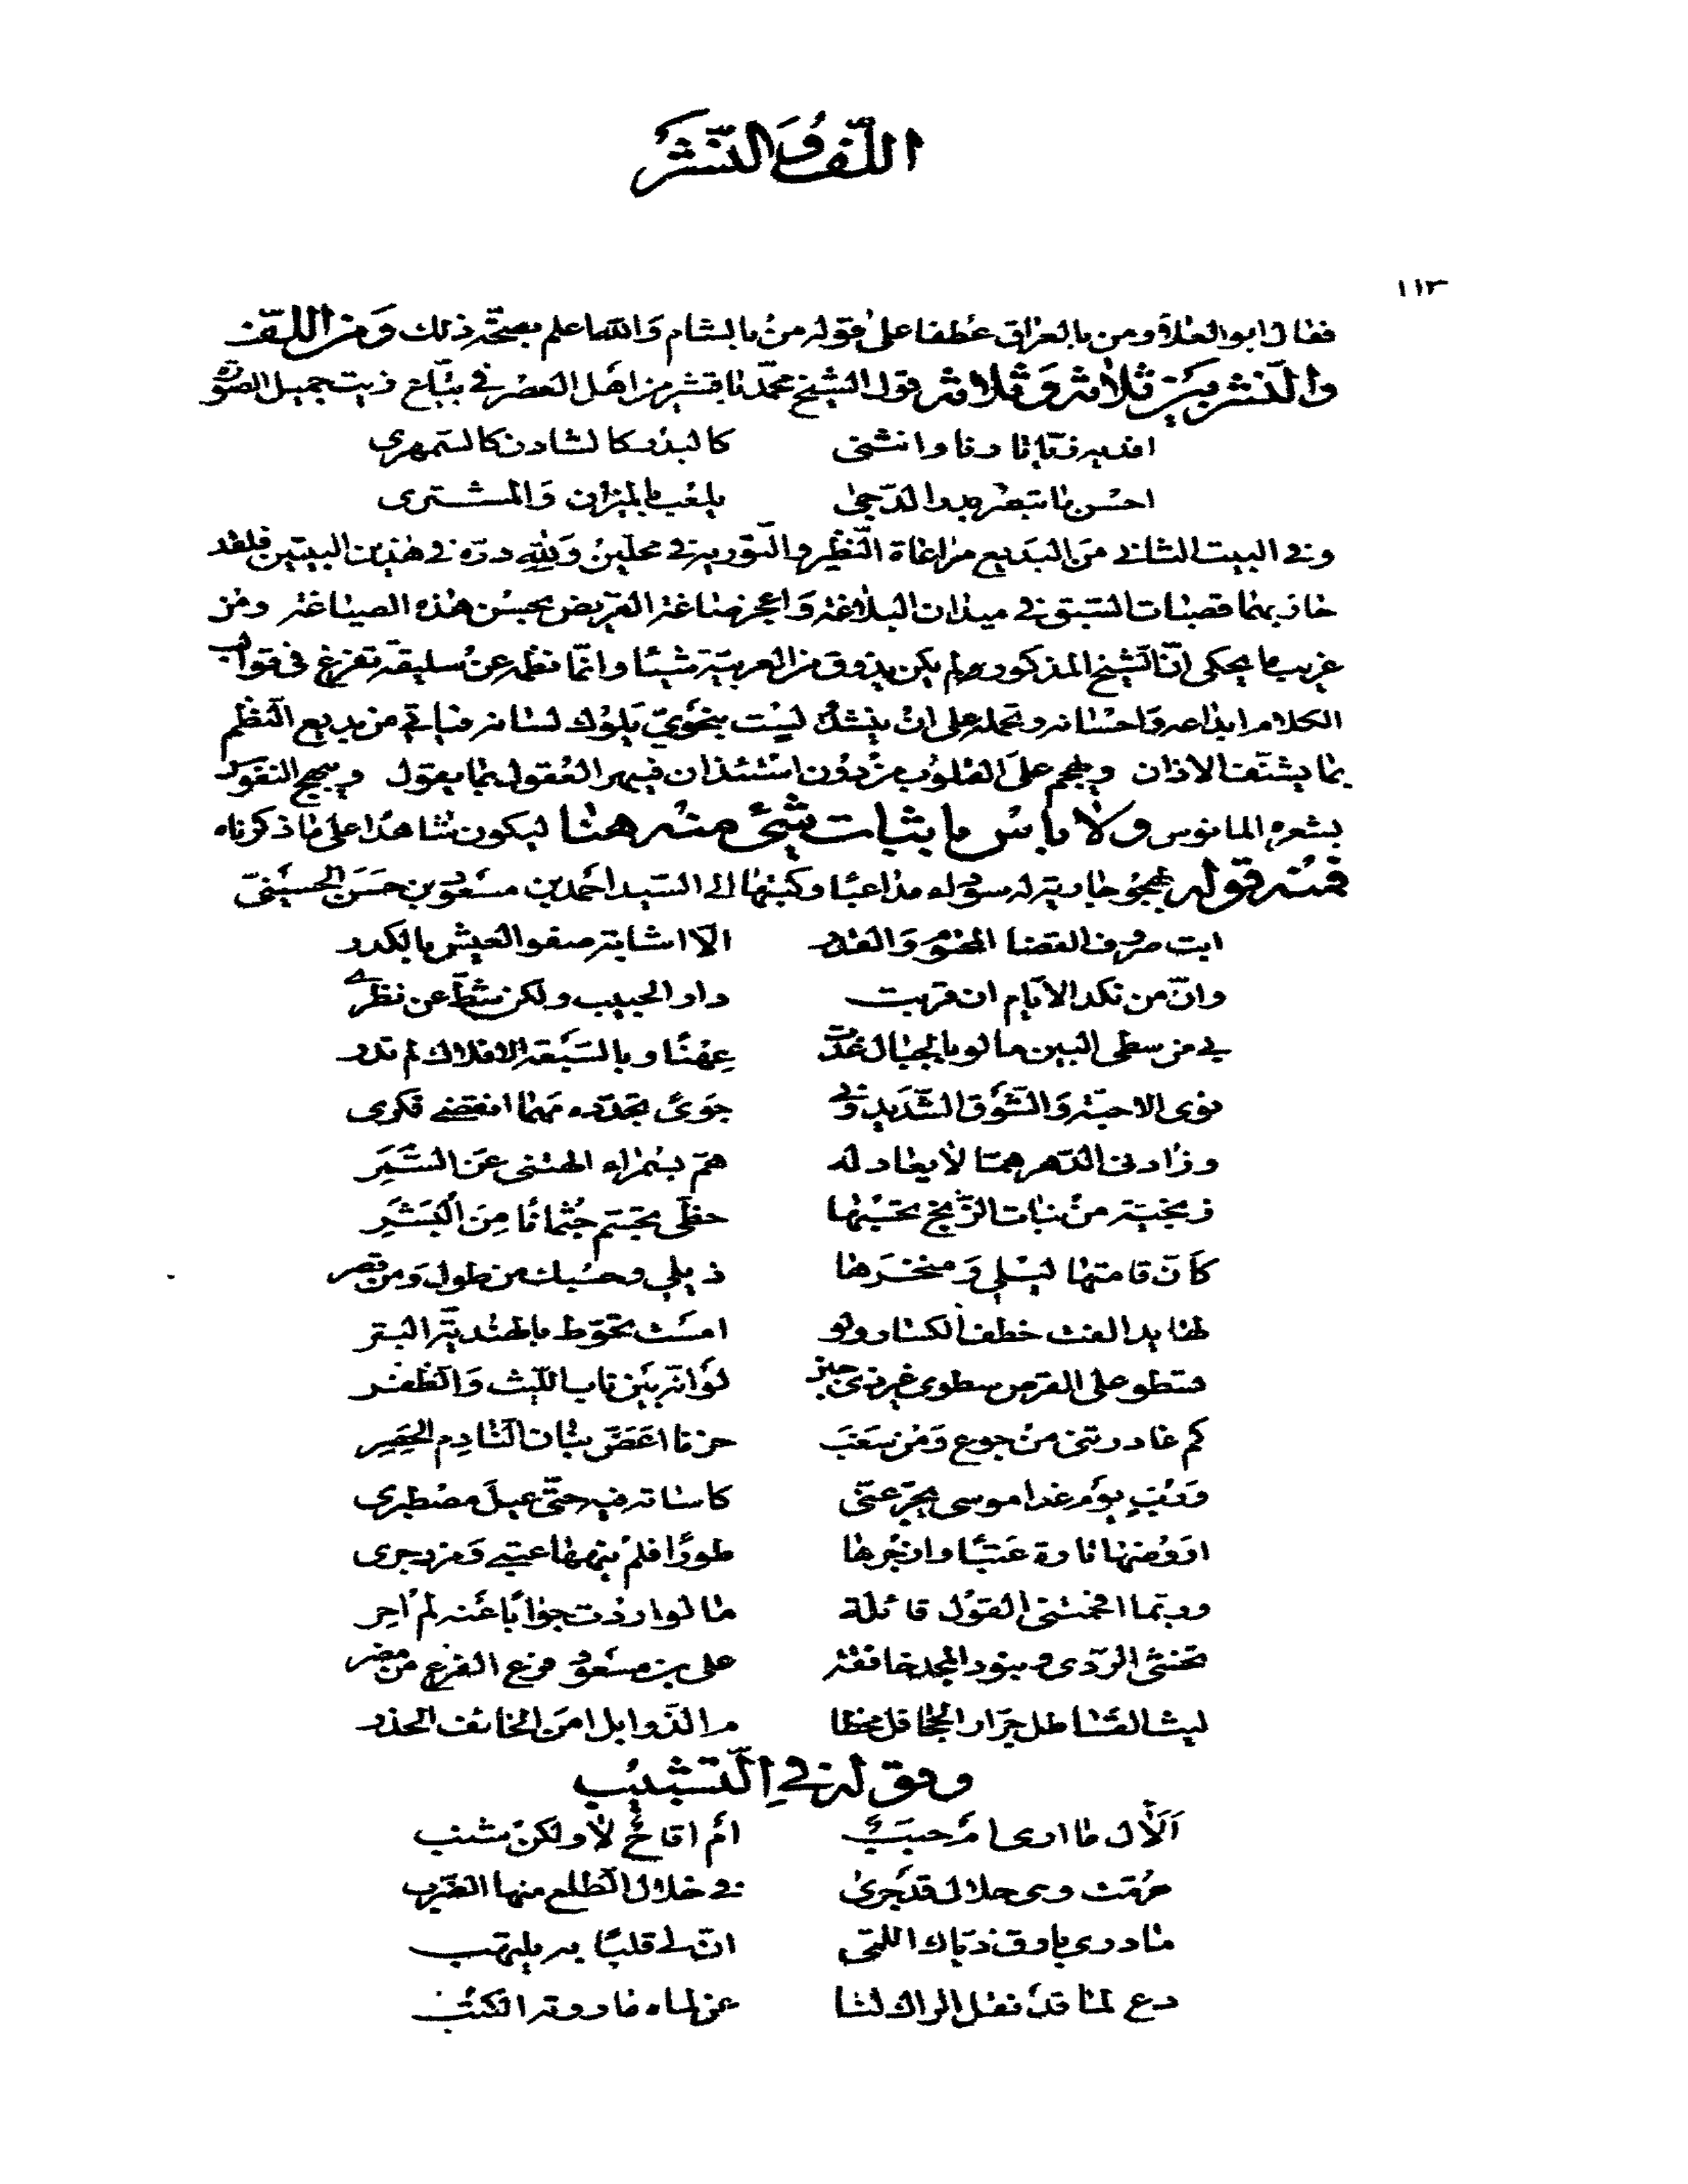 اللف والنشر
١١٣
فقال ابو العلاء ومن بالعراق عطفا على قوله من بالشام والله اعلم بصحة ذلك ومن اللف
والنشر بين ثلاثة وثلاثة قول الشيخ محمد باقشير من اهل العصر في بياع زيت جميل الصورة
افديه زياتا رنا وانثنى كالبدر كالشادن كالسمهري
احسن ما تبصر بدر الدجى يلعب بالميزان والمشترى
وفي البيت الثاني من البديع مراعاة النظير والتورية في محلين ولله دره في هذين البيتين فلقد
حاز بهما قصبات السبق في ميدان البلاغة واعجز صاغة القريض بحسن هذه الصياغة ومن
غريب ما يحكى ان الشيخ المذكور لم يكن يذوق من العربية شيئا وانما نظمه عن سليقة تفرغ في قوالب
الكلام ابداعه واحسانه وتحمله على ان ينشد وليست بنحوي يلوك لسانه فياتي من بديع النظم
بما يشنف الاذان ويهجم على القلوب من دون استئذان فيبهر العقول بما يقول ويبهج النفوس
بشعره المانوس ولا باس باثبات شئ منه هنا ليكون شاهدا على ما ذكرناه
فمنه قوله يهجو جارية له سوداء مداعبا وكتبها الى السيد احمد بن مسعود بن حسن الحسيني
ابت صروف القضا المحتوم والقدر الا اشابة صفو العيش بالكدر
وان من نكد الايام ان قربت دار الحبيب ولكن شط عن نظري
بي من سطى البين ما لو بالجبال غدت عهنا وبالسبعة الافلاك لم تدر
نوى الاحبة والشوق الشديد وبي جوى تجدده مهما انقضى فكرى
وزادنى الدهر هما لا يعادله هم بشمراء الهتنى عن السمر
زنجية من بنات الزنج تحسبها حظى تجسم جثمانا من البشر
كأن قامتها ليلي ومنخرها ذيلي وحسبك من طول ومن قصر
لها يد الفت خطف الكسار ولو امست تحوط بالهندية البتر
تسطو على القرص سطوى غير ذى جبن لو انه بين ناب الليث والظفر
كم غادرتنى من جوع ومن سغب حزنا اعض بنان النادم الحصر
ورب يوم غدا موسى يجرعنى كاساته فيه حتى عيل مصطبرى
اروضها تارة عتبا وازجرها طورا فلم ينهها عتبي ومزدجرى
وربما افحمتنى القول قائلة ما لو اردت جوابا عنه لم احر
تخشى الردى وبنود المجد خافقة على بن مسعود فرع الفرع من مضر
ليث القنا طل جرار الجحافل خطا مر الذوابل امن الخائف الحذر
وقوله في التشبيب
الآل ما ارى ام حبب ام اقاح لا ولكن شنب
حرمت وهى حلال قد جرى في خلال الطلع منها الضرب
ما درى بارق ذياك اللمى ان لي قلبا به يلتهب
دع لما قد نقل الراك لنا عن لماه ما روته الكتب